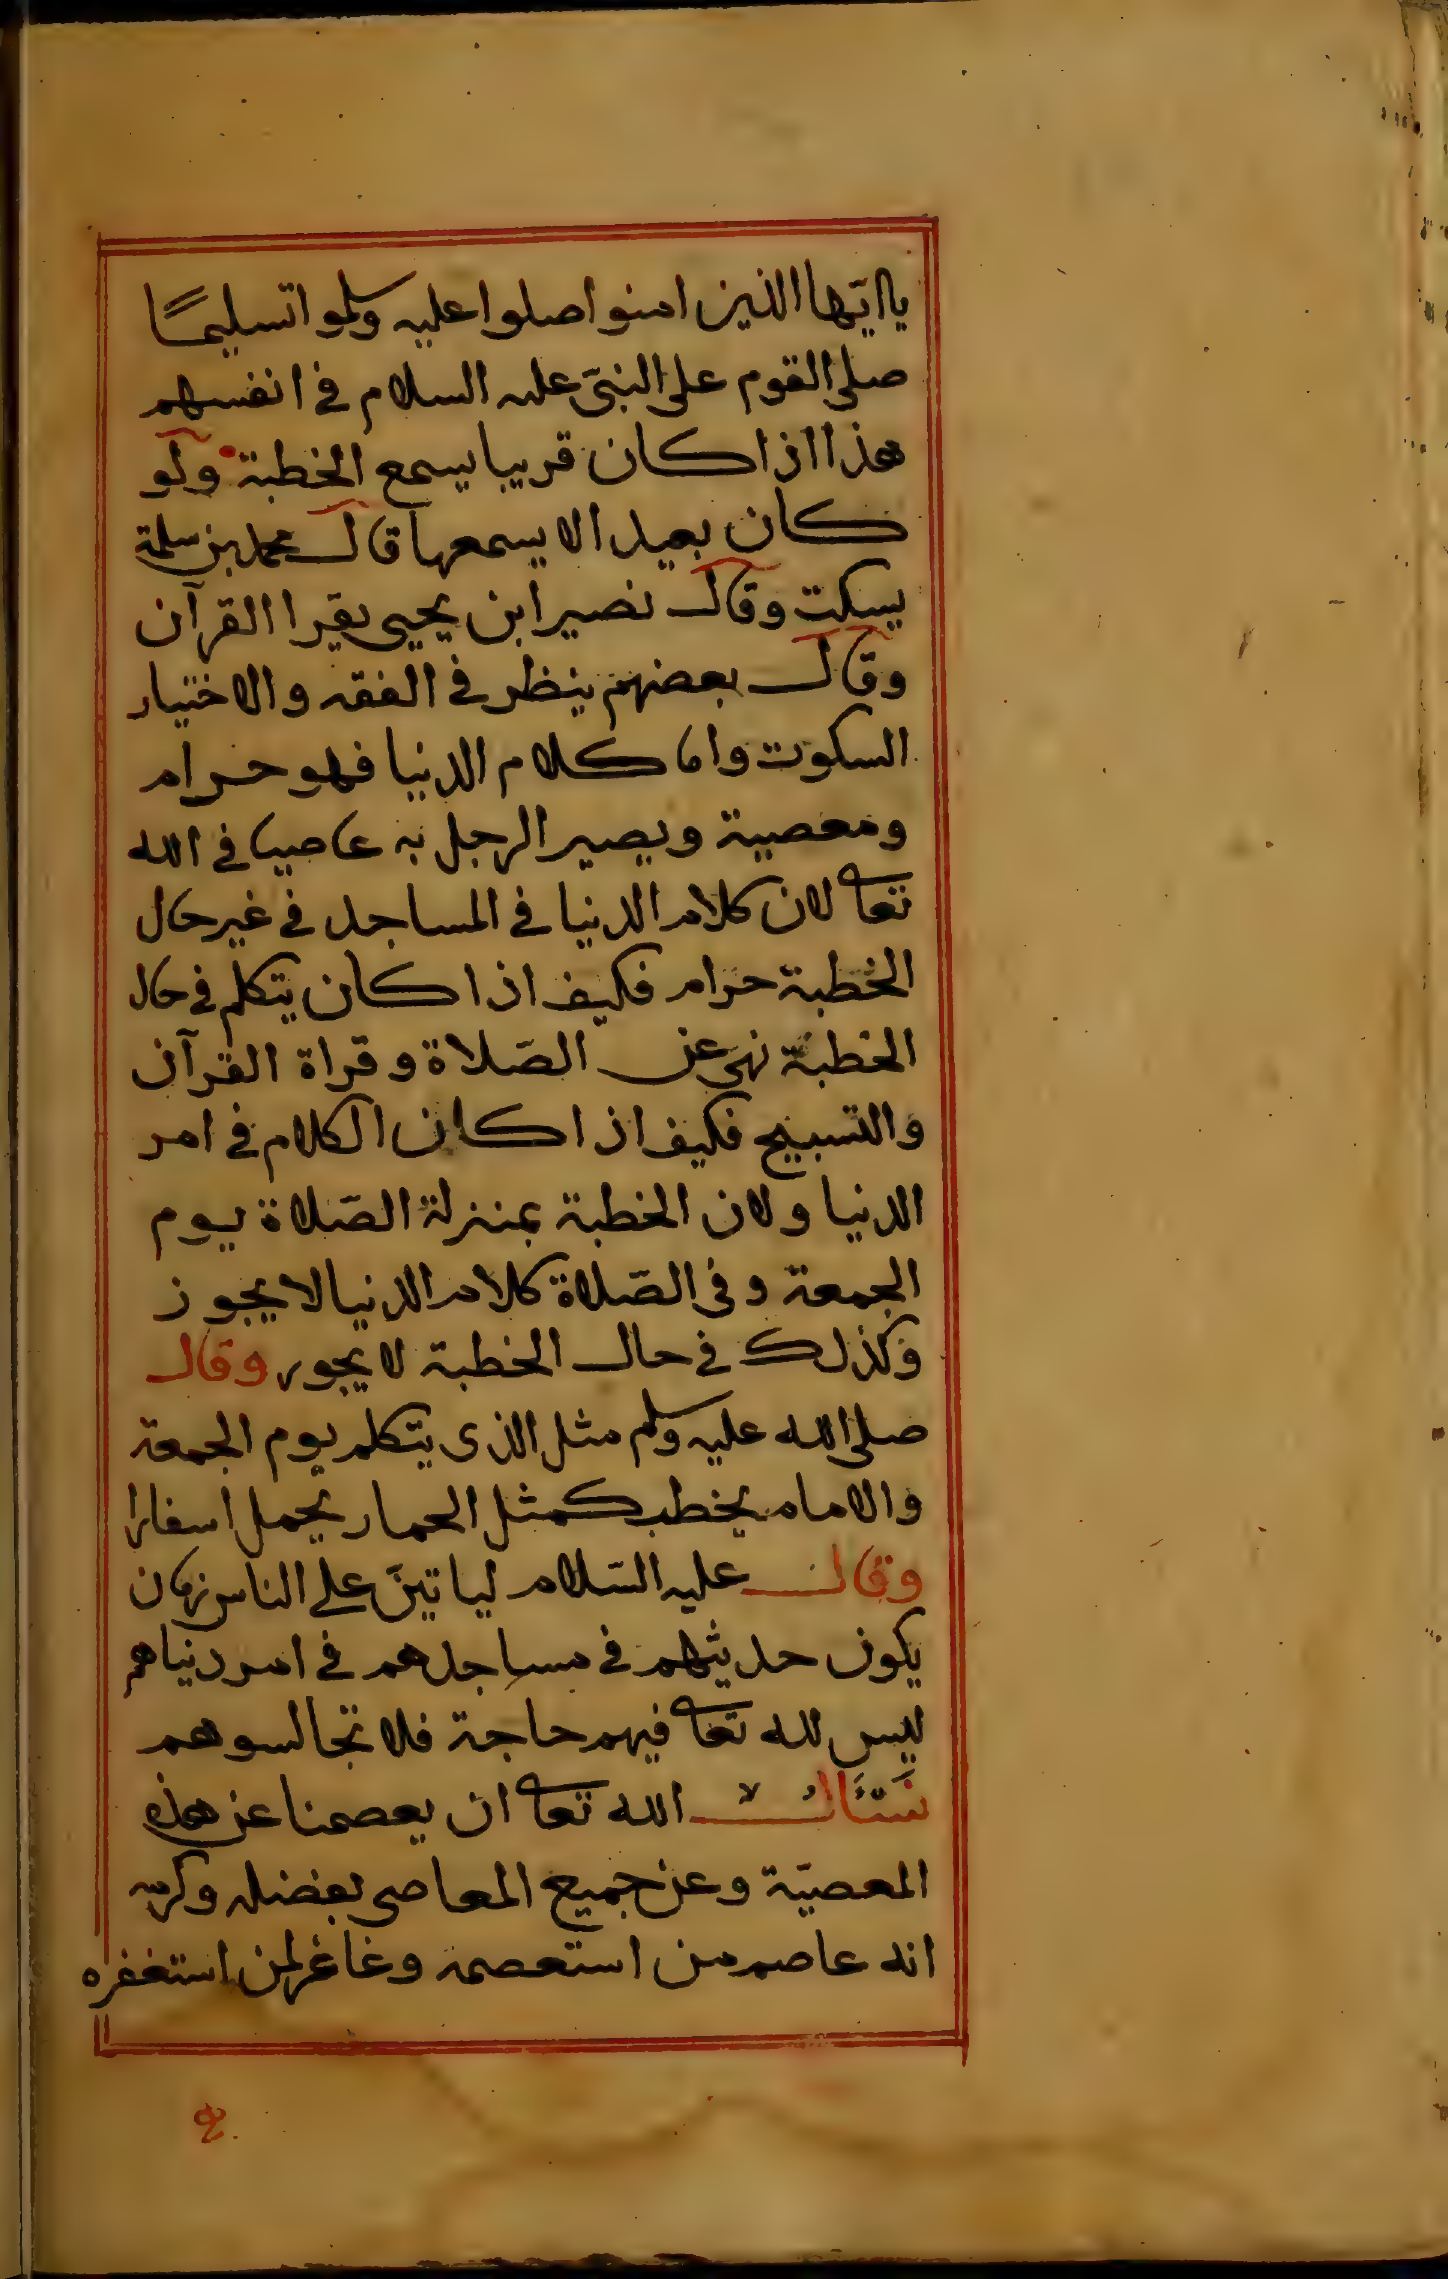 ياايّها الذين امنوا صلوا عليه وسلموا تسليمًا
صلى القوم على النبىّ عليه السلام في انفسهم
هذا اذا كان قريبا يسمع الخطبة ولو
كان بعيدا لا يسمعها قال محمد بن سلمة
يسكت وقال نصير ابن يحيى يقرا القرآن
وقال بعضهم ينظر في الفقه والاختيار
السكوت واما كلام الدنيا فهو حرام
ومعصية ويصير الرجل به عاصيا في الله
تعا لان كلام الدنيا في المساجد في غير حال
الخطبة حرام فكيف اذا كان يتكلم في حال
الخطبة نهى عن الصّلاة وقراة القرآن
والتسبيح فكيف اذا كان الكلام في امر
الدنيا ولان الخطبة بمنزلة الصّلاة يوم
الجمعة وفى الصّلاة كلام الدنيا لا يجوز
وكذلك في حال الخطبة لا يجور وقال
صلى الله عليه وسلم مثل الذى يتكلم يوم الجمعة
والامام يخطب كمثل الحمار يحمل اسفارا
وقال عليه السّلام لياتينّ على الناس زمان
يكون حديثهم في مساجدهم في امر دنياهم
ليس لله تعا فيهم حاجة فلا تجالسوهم
نَسْئَالُ الله تعا ان يعصمنا عن هذه
المعصيّة وعن جميع المعاصى بفضله وكرمه
انه عاصم من استعصمه وغافر لمن استغفره